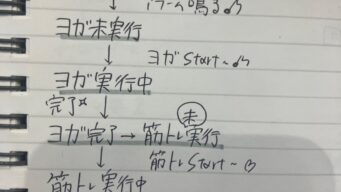 アラーム鳴る♪
ヨガ未実行
↓ ヨガstart~♪
ヨガ実行中
完了☆ ↓
ヨガ完了→筋トレ未実行
↓ 筋トレstart~♡
筋トレ実行中